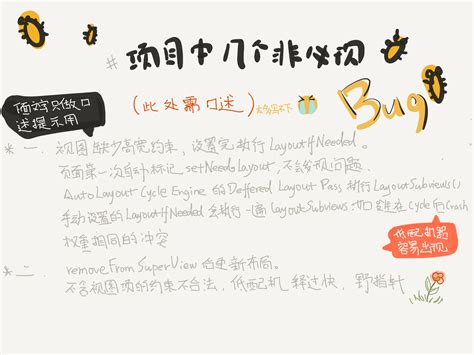 # 项目中几个非必现
Bug
面试只做口
述提示用
(此处需口述)
一、视图缺少高宽约束，设置完执行LayoutIfNeeded。
页面第一次自动标记setNeedsLayout，不会出现问题.
AutoLayout Cycle Engine 的Deffered Layout Pass 执行LayoutSubviews()
手动设置的LayoutIfNeeded 会执行一遍LayoutSubviews，如 在Cycle Crash
权重相同的冲突
低配机器
容易出现
二、removeFromSuperView 后更新布局。
不含视图项的约束不合法，低配机 释过快，野指针